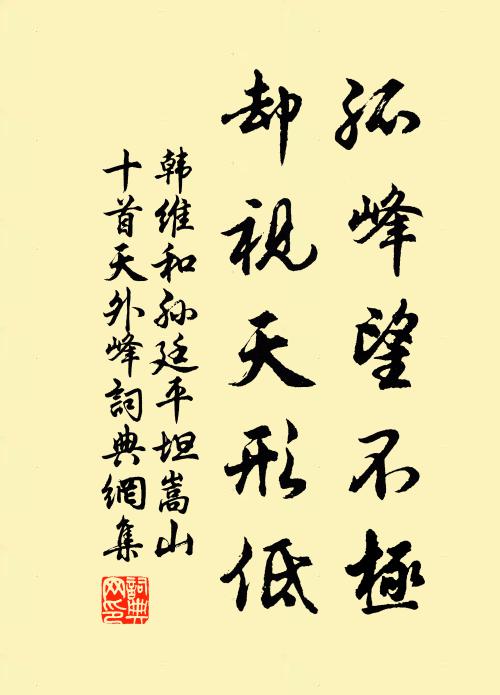 孤峰望不極
却視天形低
韩維和孫廷平坦嵩山
十首天外峰詞典網集
詞典
网印